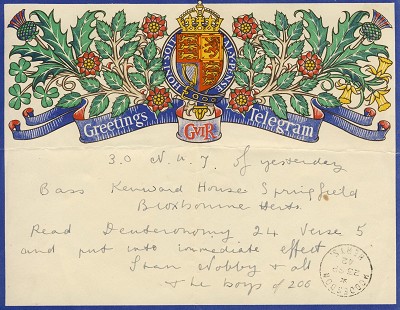 HONI SOIT QUI MAL Y PENSE
Greetings GVIR Telegram
3.0 N.U.7. of yesterday
Bass Kenward House Springfield
Broxbourne Herts.
Read Deuteronomy 24 Verse 5
and put into immediate effect
Nobby & all
& the boys of 200
HERTS